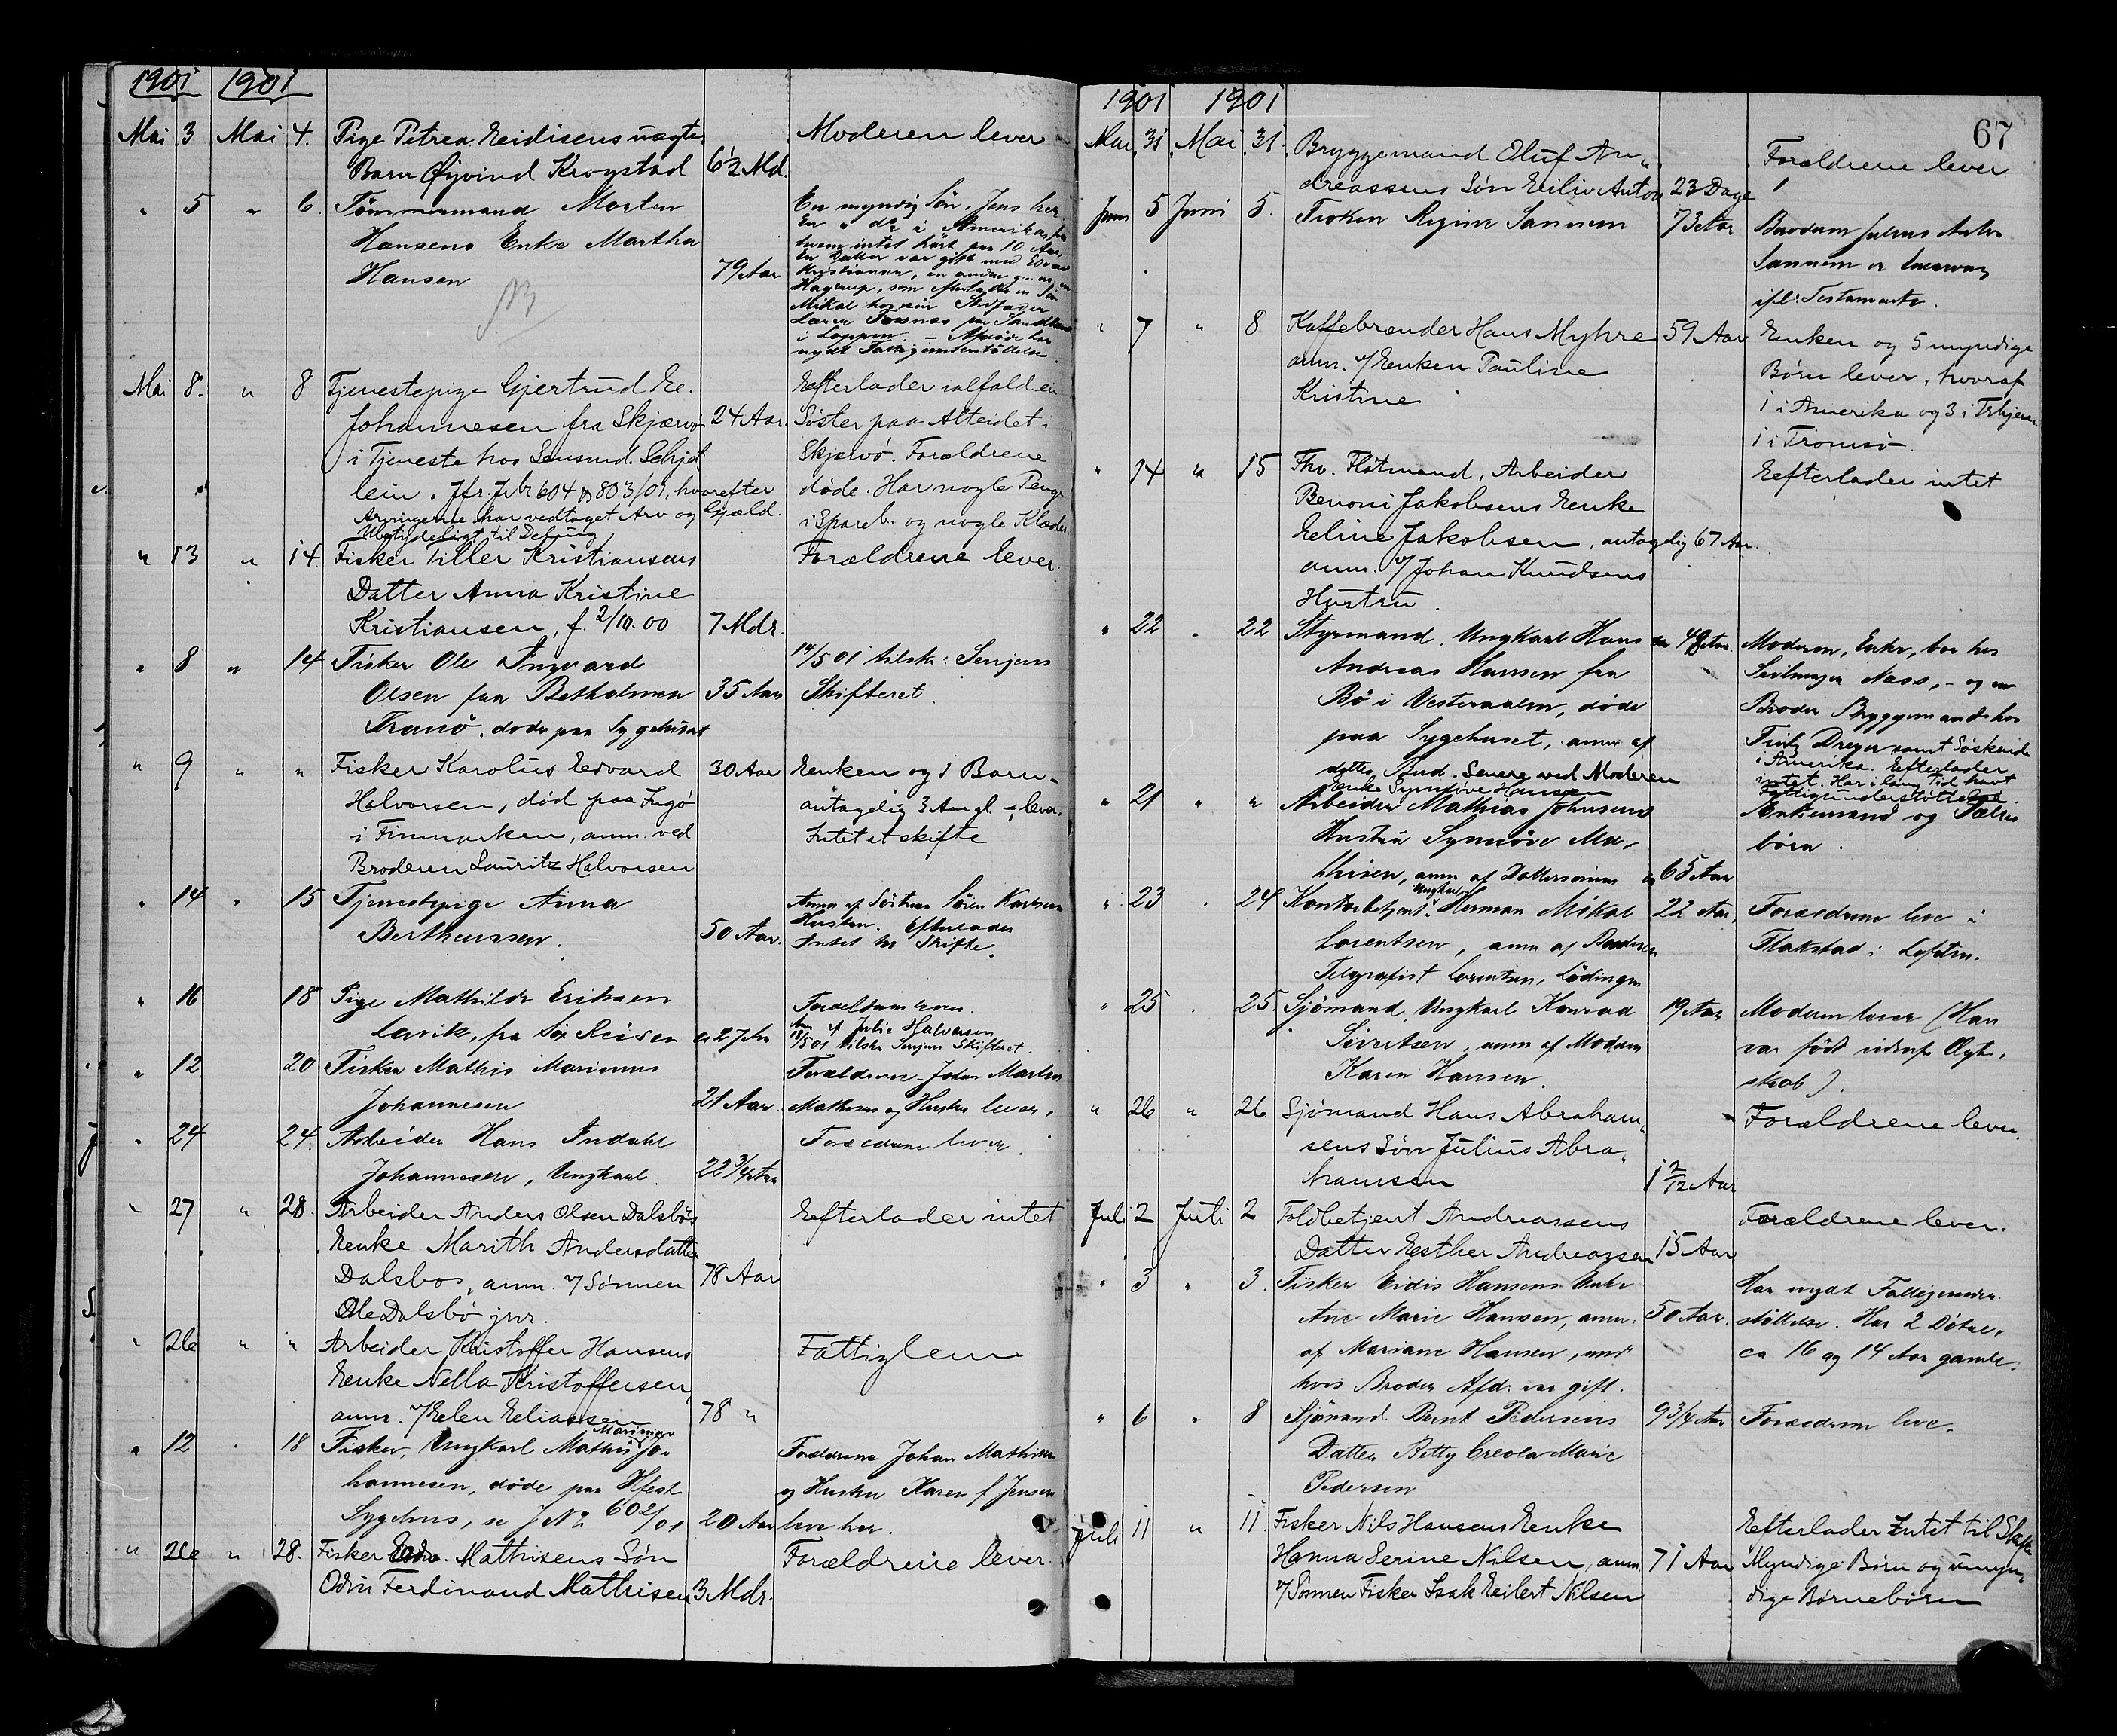 1901 1901
Mai 3 Mai 4. Pige Petrea Eidisens uægte Moderen lever
Barn Øyvind Krogstad 6½ Md.
" 5 " 6. Tømmermand Morten En myndig Søn, Jens her.
Hansens Enke Martha En " do i Amerika, fra
Hansen 79 Aar hvem intet hørt paa 10 Aar,
En Datter var gift med Edvard
Kristiansen, en anden
Hagerup, som efterlod en Søn
Mikal hos sin Stiffader
i Loppen. – Afdøde har
nydt Fattigunderstøttelse.
Mai 8. " 8 Tjenestepige Gjertrud E. Efterlader ialfald en
Johannesen fra Skjærvø 24 Aar. Søster paa Alteidet i
i Tjeneste hos Skjærvø. Forældrene
Jfr. Jr. 604 803/01, hvorefter døde. Har nogle Penge
Arvingerne har vedtaget Arv og Gjæld. i Spareb. og nogle Klæder.
" 13 " 14. Fisker Tiller Kristiansens Forældrene lever.
Datter Anna Kristine
Kristiansen, f. 2/10.00 7 Mdr.
" 8 " 14 Fisker Ole Ingvard 14/5 01 tilskr. Senjens
Olsen fra Betholmen 35 Aar Skifteret.
Tranø. døde paa Sygehuset
" 9 " " Fisker Karolus Edvard 30 Aar Enken og 1 Barn –
Halvorsen, død paa Ingø antagelig 3 Aar gl. –, lever.
i Finmarken, anm. ved Intet at skifte
Broderen Lauritz Halvorsen
" 14 " 15 Tjenestepige Anna Anm. af Søsteren Søren Karlsens
Bertheussen. 50 Aar. Hustru. Efterlader
Intet til Skifte.
" 16 18 Pige Mathilde Eriksen Forældrene
Lavik, fra Sør Reisen ca 27 Aar Anm. af Julie Halvorsen
18/5 01 tilskr. Senjens Skifteret.
" 12 20 Fisker Mathis Marinius Forældrene – Johan Martin
Johannesen 21 Aar. Mathisen og Hustru lever.
" 24 24. Arbeider Hans Indahl Forældrene lever.
Johannesen, Ungkarl. 22 3/4 Aar
" 27 " 28. Arbeider Anders Olsen Dalsbøs Efterlader intet
Enke Marith Andersdatter
Dalsbo, anm. v/ Sønnen 78 Aar
Ole Dalsbø jnr.
" 26 " " Arbeider Kristoffer Hansens Fattiglem
Enke Nella Kristoffersen,
anm. v/ Elen Eliassen 78 "
" 12 . 18 Fisker, Ungkarl Mathis Marinius Jo- Forældrene Johan Mathisen
hannesen, døde paa Hfest og Hustru Karen f. Jensen
Sygehus, se J No 602/01 20 Aar leve her.
" 26 " 28. Fisker Mathisens Søn Forældrene lever.
Odin Ferdinand Mathisen 3 Mdr.
67
1901 1901
Mai 31 Mai 31. Bryggemand Oluf An- Forældrene lever
dreassens Søn Eiliv Anton 23 Dage
Juni 5 Juni 5. Frøken Regine Sannem 73 Aar Brodøm Julius Anton
Sannem er Enearving
ifl. Testamente.
" 7 " 8 Kaffebrænder Hans Myhre 59 Aar Enken og 5 myndige
anm. v/ Enken Pauline Børn lever, hvoraf
Kristine 1 i Amerika og 3 i Trhjem
1 i Tromsø
" 14 " 15 Fhv. Flötmand, Arbeider Efterlader intet
Benoni Jakobsens Enke
Eline Jakobsen, antagelig 67 Aar.
anm. v/ Johan Knudsens
Hustru.
" 22 . 22 Styrmand, Ungkarl Hans ca 48 Aar. Moderen, Enke, bor hos
Andreas Hansen fra Seilmager Nass, – og en
Bø i Vesteraalen, døde Broder Bryggemand hos
paa Sygehuset, anm af Fritz Dreyer samt Søskende
dettes Bud. Senere ved Moderen i Amerika. Efterlader
Enke Synnøve Hansen intet. Har i lang Tid havt
Fattigunderstøttelse.
" 21 " " Arbeider Mathias Johnsens Enkemand og Fælles
Hustru Synnöve Ma- börn.
thisen, anm af Dattersønnen ca 65 Aar
" 23 . 24 Kontorbetjent, Ungkarl Herman Mikal 22 Aar. Forældrene leve i
Lorentsen, anm af Broderen Flakstad i Lofoten.
Telegrafist Lorentsen, Lödingen
" 25 . 25 Sjömand, Ungkarl Konrad 19 Aar Moderen lever (Han
Sivertsen, anm af Moderen var født udenf. Ægte-
Karen Hansen. skab).
" 26 " 26 Sjömand Hans Abraham- Forældrene lever.
sens Søn Julius Abra-
hamsen 1 2/12 Aar
Juli 2 Juli 2 Toldbetjent Andreassens Forældrene lever.
Datter Esther Andreassen 15 Aar
" 3 " 3. Fisker Eidis Hansens Enke Har nydt Fattigunder-
Ane Marie Hansen, anm. 50 Aar. støttelse. Har 2 Døtre,
af Mariane Hansen, med ca 16 og 14 Aar gamle.
hvis Broder Afd. var gift.
" 6 " 8 Sjömand Bernt Pedersens 9 3/4 Aar Forældrene leve.
Datter Betty Creola Marie
Pedersen
Juli 11 " 11. Fisker Nils Hansens Enke Efterlader Intet til Skifte
Hanna Serine Nilsen, anm. 71 Aar Myndige Børn og umyn-
v/ Sønnen Fisker Isak Eilert Nilsen dige Børnebørn